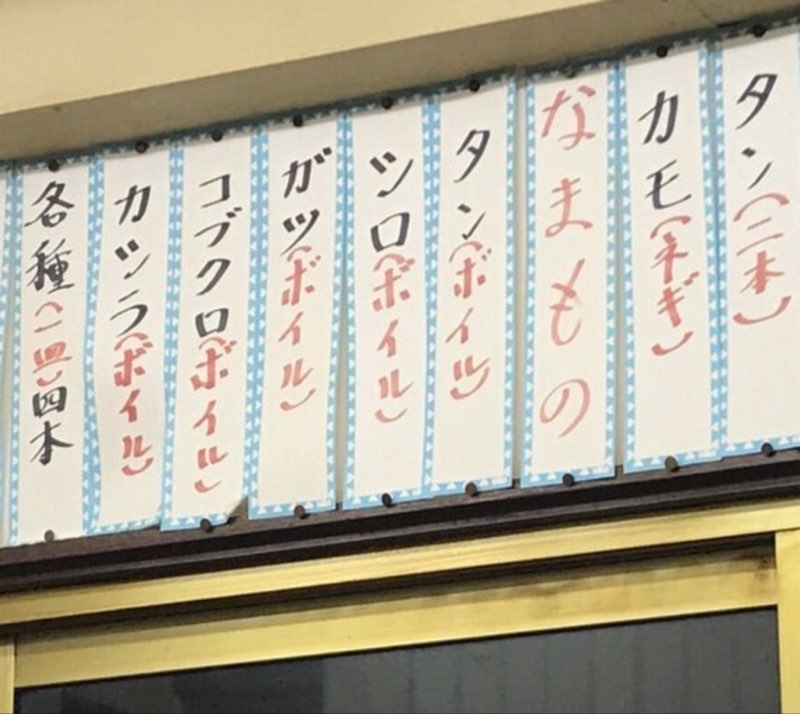 タン(二本)
カモ(ネギ)
なまもの
タン(ボイル)
シロ(ボイル)
ガツ(ボイル)
コブクロ(ボイル)
カシラ(ボイル)
各種(一皿)四本